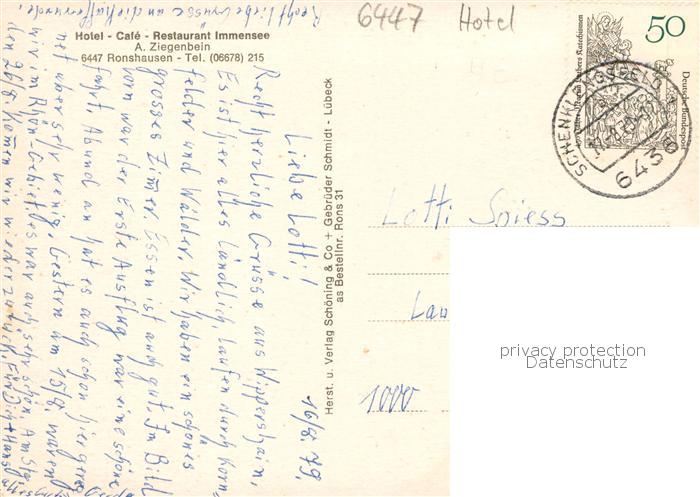 Rechtliebe Grüsse an die Kaffeerunde!
6447 Hotel
Hotel - Café - Restaurant Immensee
A. Ziegenbein
6447 Ronshausen - Tel. (06678) 215
16/8. 79.
Liebe Lotti!
Recht herzliche Grüsse aus
Es ist hier alles Ländlich, laufen durch Korn-
felder und Wälder. Wir haben ein schönes
grosses Zimer Essen ist auch gut. Im Bild
vorn war der Erste Ausflug war eine schöne
fahrt. Ab und an hat es auch schon hier gereg
net aber sehr wenig. Gestern am 15/8. waren
wir im Rhön-Gebiet es war auch sehr schön. Am
den 26/8. komen wir wieder zurück. Hans
Herst. u. Verlag Schöning & Co + Gebrüder Schmidt - Lübeck
as Bestellnr. Rons 31
50
Deutsche Bundespost
SCHENKLENGSFELD
6436
Lotti Spiess
Lau
1000
privacy protection
Datenschutz